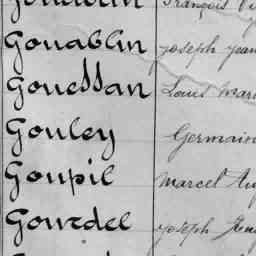 Gouablin Joseph Jean
Gouessan Louis Mari
Gouley Germain
Goupil Marcel Aug
Gourdel Joseph